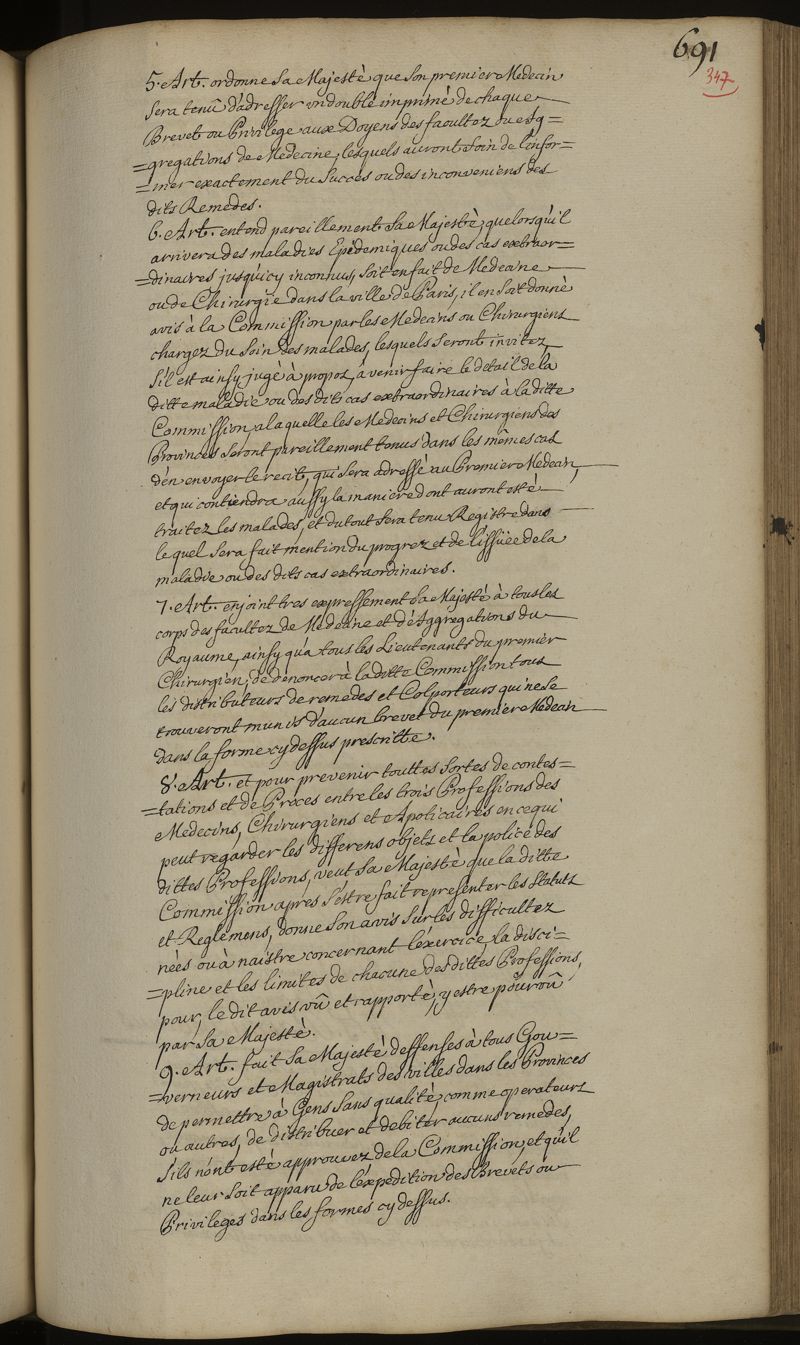 691
347
5. Art. ordonne Sa Majestè que Son premier Medecin
Sera tenû d'adresser un double imprimé de chaque
Brevet ou Privilege aux Doyens des facultez ou Ag=
=gregations de Medecine, lesquels auront Soin de l'infor=
=mer exactement du Succès ou des inconveniens des
dits Remedes.
6. Art. entend pareillement Sa Majestè, que lorsqu'il
arrivera des maladies Epidemiques ou des cas extraor=
=dinaires jusqu'icy inconnus, Soit en fait de Medecine
ou de Chirurgie dans la ville de Paris, il en Soit donnè
avis à la Commission par les Medecins ou Chirurgiens
chargez du Soin des malades, lesquels Seront invitez,
S'il est ainsy jugè à propos, à venir faire le detail de la
ditte maladie ou des dits cas extraordinaires à la ditte
Commission, a laquelle les Medecins et Chirurgiens des
Provinces Seront pareillement tenus dans les mêmes cas
d'en envoyer le recit, qui Sera adressé au Premier Medecin,
et qui contiendra aussy la maniere dont auront esté
traitez les malades, et du tout Sera tenu Registre dans
lequel Sera fait mention du progrez et de l'issüee de la
maladie ou des dits cas extraordinaires.
7. Art. enjoint tres expressement Sa Majesté à tous les
corps des facultez de Medecine et d'Aggregations du
Royaume, ainsy qu'a tous les Lieutenants du premier
Chirurgien, de denoncer à la ditte Commission tous
les distributeurs de remedes et Colporteurs qui ne Se
trouveront munis d'aucun brevet du premier Medecin
dans la forme cy dessus prescritte.
8. Art. et pour prevenir touttes Sortes de contes=
=tations et de Procès entre les trois Professions des
Medecins, Chirurgiens et Apoticaires en ce qui
peut regarder les differens objets et la police des
dittes Professions, veut Sa Majestè que la ditte
Commission apres S'estre fait representer les Statuts
et Reglemens, donne Son avis Sur les difficultez
nées ou à naistre concernant l'exercice, la disci=
=pline et les limites de chacune des dittes Professions,
pour, le dit avis vû et rapporté, y estre pourvû
par Sa Majestè.
9. Art. fait Sa Majestè deffenses à tous Gou=
=verneurs et Magistrats des villes dans les Provinces
de permettre à Gens Sans qualité, comme operateurs
ou autres, de distribuer et debiter aucuns remedes,
S'ils n'ont esté approuvez de la Commission, et qu'il
ne leur Soit apparu de l'expedition des Brevets ou
Privileges dans les formes cy dessus.